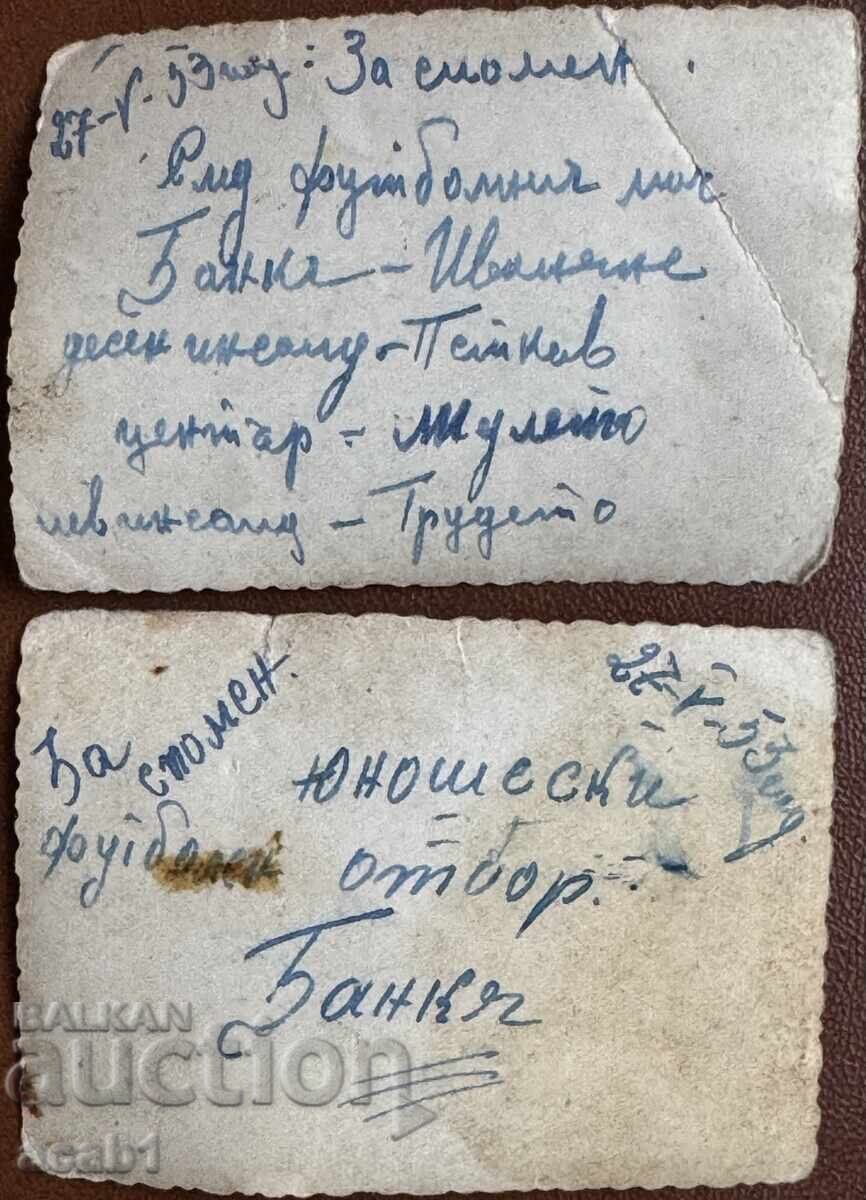 27-V-53 год: За спомен.
след футболния мач
Банкя - Иваняне
десен инсайд - Петков
център - Жулето
лев инсайд - Трудето
За спомен.
27-V-53 год
Юношески
футболен отбор.
Банкя
BALKAN
auction
acab1